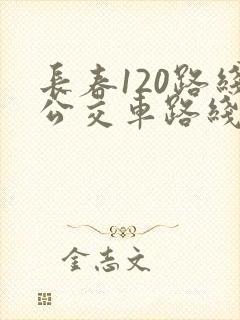 長春120路綫
公交車路綫
金志文